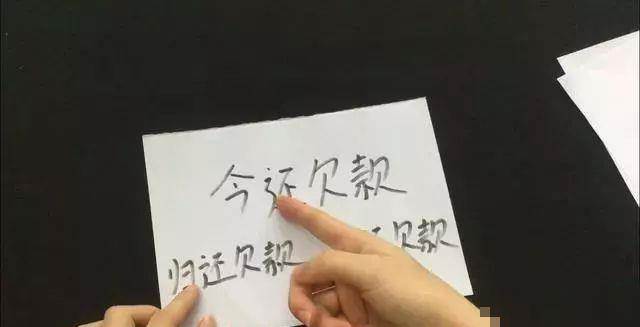 今还欠款
归还欠款 欠款